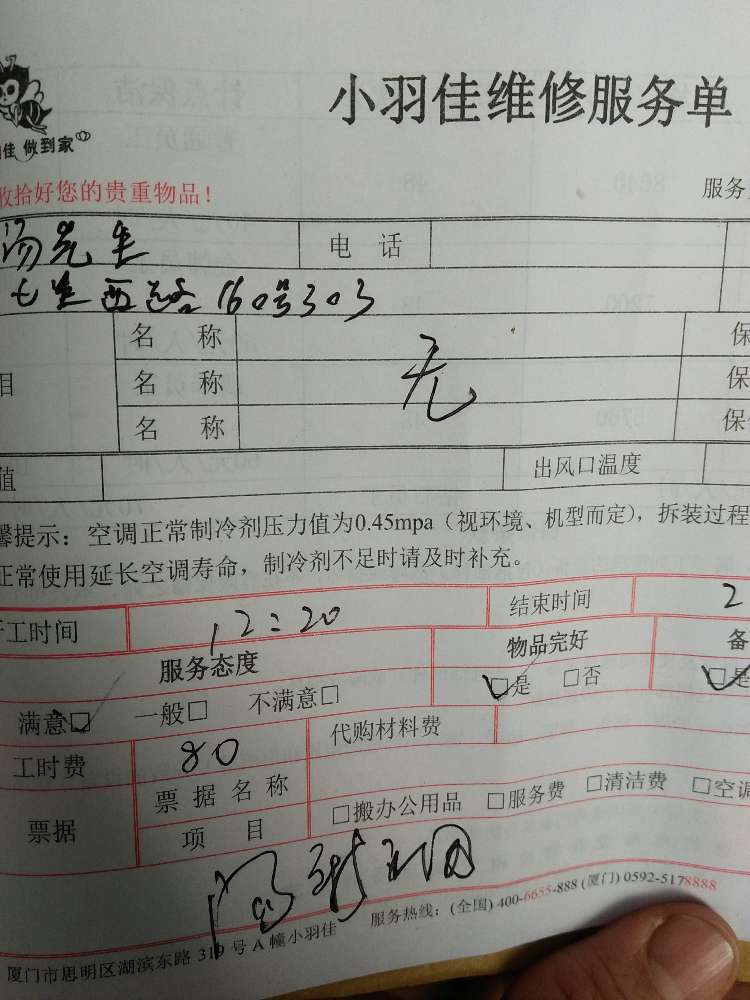 小羽佳维修服务单
佳 做到家
收拾好您的贵重物品！ 服务
汤先生 电 话
七星西路160号303
名 称 保
目 名 称 无 保
名 称 保
值 出风口温度
馨提示：空调正常制冷剂压力值为0.45mpa（视环境、机型而定），拆装过程
正常使用延长空调寿命，制冷剂不足时请及时补充。
工时间 12:20 结束时间 2
服务态度 物品完好 备
满意□ 一般□ 不满意□ □是 □否 □是
工时费 80 代购材料费
票据 票据名称 □搬办公用品 □服务费 □清洁费 □空调
项 目
服务热线：(全国) 400-6655-888 (厦门) 0592-5178888
厦门市思明区湖滨东路 319 号 A 幢小羽佳